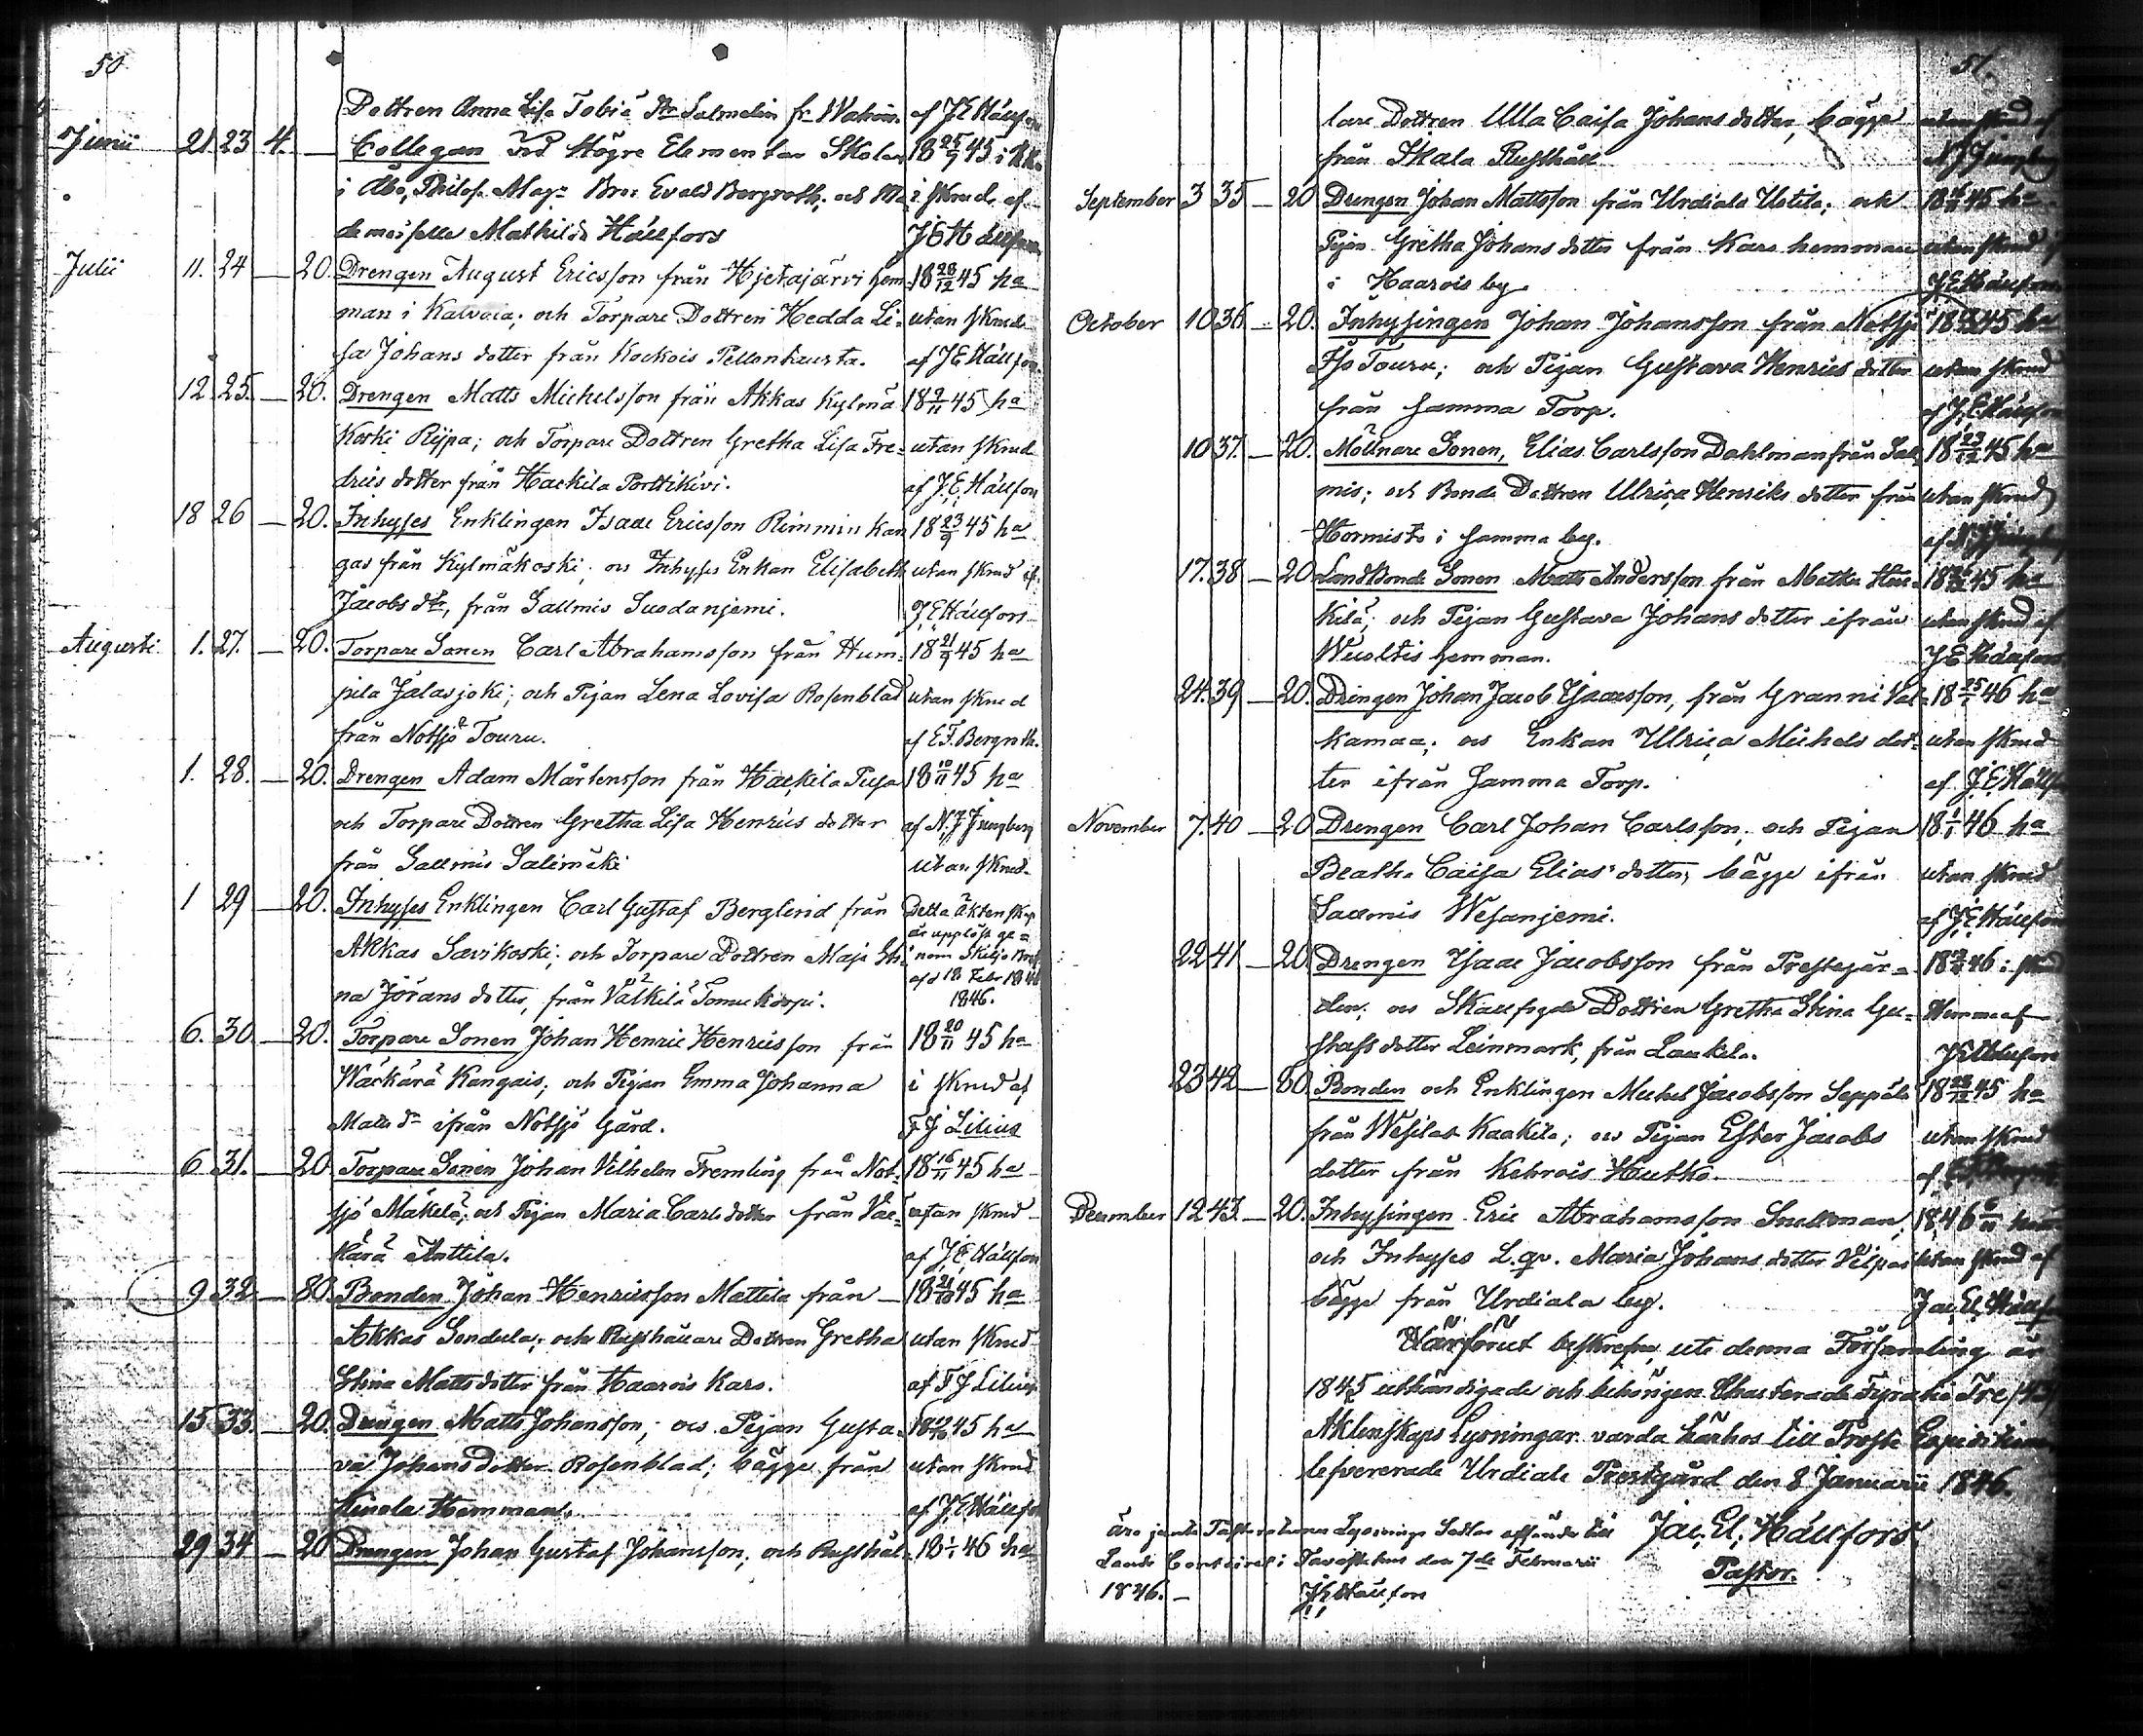 50.
Dottren Anna Lisa Tobiæ Dr Salmelin fr. Wahois. af J E Hällfors
Junii 21 23 4. — Collegan vid Högre Elementar Skolan 18 25/9 45 i
i Åbo, Philos. Magr Bror Evald Bergroth; och Ma- i skrud af
demoiselle Mathilda Hällfors J E Hällfors
Julii 11. 24 — 20. Drengen August Ericsson från Hjetajärvi hem- 18 28/12 45 ha
man i Kalvola; och Torpare Dottren Hedda Li- utan skrud
sa Johans dotter från Kockois Pellonhausta. af J E Hällfors
12 25. — 20. Drengen Matts Michelsson från Akkas Kylmä 18 9/11 45 ha
Koski Rijpa; och Torpare Dottren Gretha Lisa Fre- utan skrud
drics dotter från Hackila Porttikivi. af J. E. Hällfors
18 26 — 20. Inhyses Enklingen Isaac Ericsson Rimminkan 18 23/9 45 ha
gas från Kylmäkoski; och Inhyses Enkan Elisabeth utan skrud af
Jacobs dr, från Salmis Suodanjemi. J. E. Hällfors
Augusti 1. 27. — 20. Torpare Sonen Carl Abrahamsson från Hum- 18 21/9 45 ha
pila Jalasjoki; och Pigan Lena Lovisa Rosenblad utan skrud
från Notsjö Touru. af E F. Bergroth.
1. 28. — 20. Drengen Adam Mårtensson från Hackila Pusa 18 10/11 45 ha
och Torpare Dottren Gretha Lisa Henrics dotter af N. J Jungberg
från Salmis Salimäki utan skrud.
1 29 — 20. Inhyses Enklingen Carl Gustaf Berglund från Detta Äktenskap
är upplöst ge=
Akkas Savikoski; och Torpare Dottren Maja Sti- nom Skiljo Bref
afd 18 Febr 1846
na Jörans dotter, från Välkilä Tomukorpi. 1846.
6. 30 — 20. Torpare Sonen Johan Henric Henricsson från 18 20/11 45 ha
Wäckärä Kangais; och Pigan Emma Johanna i skrud af
Matts dr ifrån Notsjö Gård. F J Lilius
6 31. — 20 Torpare Sonen Johan Vilhelm Fremling från Not- 18 16/11 45 ha
sjö Mäkelä; och Pigan Maria Carls dotter från Väc- utan skrud
kärä Anttila. af J. E. Hällfors
9 32 — 80. Bonden Johan Henricsson Mattila från 18 21/10 45 ha
Akkas Sondula; och Rusthållare Dottren Gretha utan skrud
Stina Matts dotter från Haarois Kars. af F J Lilius
15 33 — 20. Drengen Matts Johansson; och Pigan Gusta- 45 ha
va Johans Dotter Rosenblad; bägge från utan skrud
Hemman. af J E Hällfors
29 34 — 20 Drengen Johan Gustaf Johansson; och Rusthål- 18 1/1 46 ha
51.
lare Dottren Ulla Caisa Johans dotter, bägge utan skrud af
från Skala Rusthåll N J Jungberg
September 3 35 — 20 Drengen Johan Mattsson från Urdiala Uotila; och 45 ha
Pigan Gretha Johans dotter från Kars hemman utan skrud
i Haarois by. J E Hällfors
October 10 36 — 20. Inhysingen Johan Johansson från Notsjö 45 ha
Touru; och Pigan Gustava Henrics dotter utan skrud
från samma Torp. af J. E. Hällfors
10 37. — 20. Möllnare Sonen, Elias Carlsson Dahlman från Sal- 18 23/12 45 ha
mis; och Bonde Dottren Ulrica Henriks dotter från utan skrud
Hormisto i samma by. af N J Jungberg
17. 38 — 20 Landbonde Sonen Matts Andersson från Matku 45 ha
kilä; och Pigan Gustava Johans dotter ifrån utan skrud af
hemman. J E Hällfors
24. 39 — 20. Drengen Johan Jacob Isacsson, från Granni Val- 18 25/1 46 ha
kamaa; och Enkan Ulrica Michels dot- utan skrud
ter ifrån samma Torp. af J. E. Hällfors
November 7. 40 — 20 Drengen Carl Johan Carlsson; och Pigan 18 1/1 46 ha
Beatha Caisa Elias dotter; bägge ifrån utan skrud
Salmis Wesanjemi. af J. E. Hällfors
22 41 — 20 Drengen Isaac Jacobsson från Prestegår- 46 i skrud
den; och Skallfogde Dottren Gretha Stina Gu- Hemma af
stafs dotter Leinmark, från Laukela. J E Hällfors
23 42 — 80 Bonden och Enklingen Michel Jacobsson Seppälä 18 28/12 45 ha
från Wesilax Kaakila; och Pigan Ester Jacobs utan skrud
dotter från Kehrois Hutko.
December 12 43 — 20. Inhysingen Eric Abrahamsson Snellman, 1846
och Inhyses L. qv. Maria Johans dotter Vilpas utan skrud af
bägge från Urdiala by. Jac. El. Hällfors
Härförut beskrefne, uti denna Församling år
1845 uthändigade och behörigen Charterade Fyratio Tre /43/
Äktenskaps Lysningar varda härhos till Prosts Expeditionen
lefvererade Urdiala Prestgård den 8 Januarii 1846.
Jac. El. Hällfors
Pastor.
äro jemte Lysnings Sedlar affända till
Lands Contoiret i Tavastehus den 7de Februarii
1846. — J E Hällfors